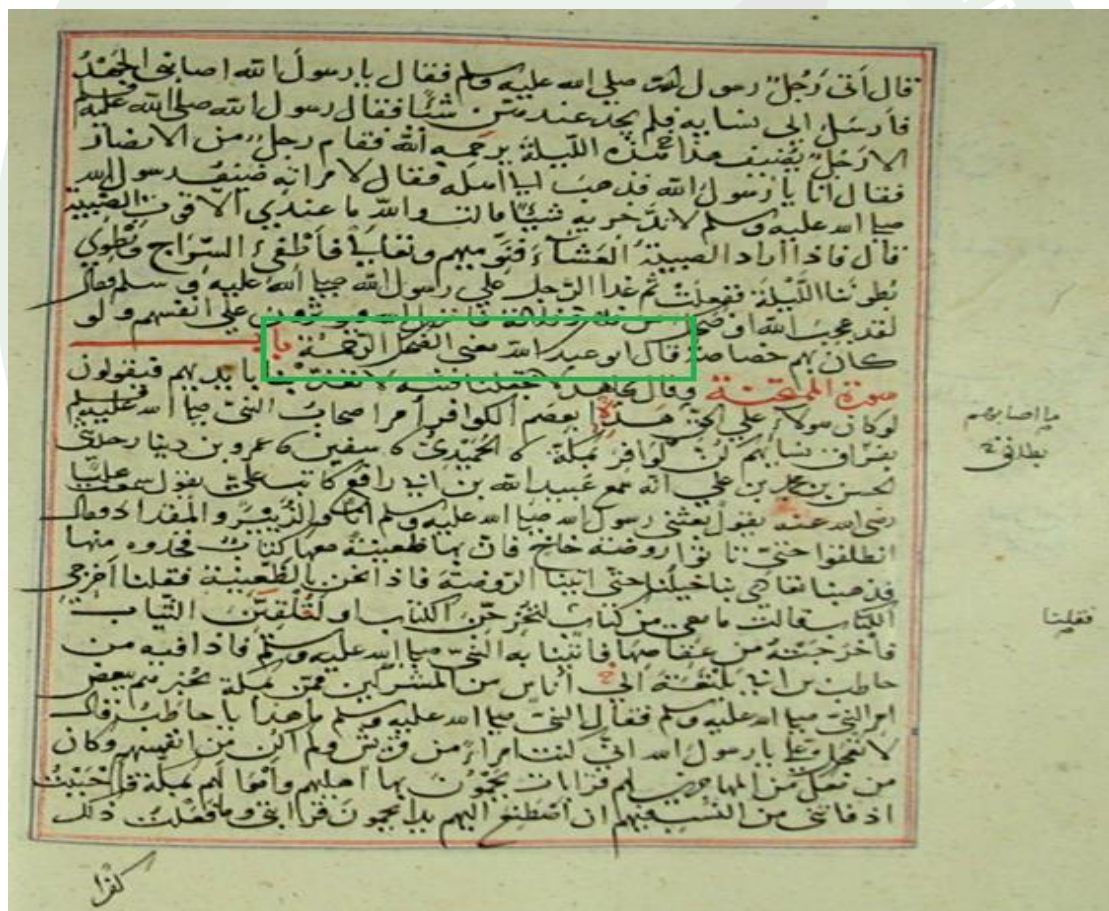 قال أتى رَجُلٌ رسول الله صلى الله عليه وسلم فقال يا رسول الله اصابني الجَهْدُ
فأرسَل الى نسايه فلم يجد عندهن شيئًا فقال رسول الله صلى الله عليه وسلم
الا رَجُلٌ يُضيف هذا هذه اللّيلة يرحمه الله فقام رجلٌ من الانصار
فقال انا يا رسول الله فذهب الى اهله فقال لامراته ضيف رسول الله
صلى الله عليه وسلم لا تدّخريه شيئًا قالت والله ما عندي الّا قوت الصّبية
قال فاذا اراد الصبية العَشاءَ فنوّميهم وتعالى فأطفئ السّراج ونطوي
بُطوننا اللّيلة ففعلت ثم غدا الرّجل على رسول الله صلى الله عليه وسلم فقال
لقد عجب الله او ضحك من فلان وفلانة فانزل الله ويوثرون على انفسهم ولو
كان بهم خصاصة قال ابو عبد الله معنى الضحك الرّحمة
سورة الممتحنة وقال مجاهد لا تجعلنا فتنة لا تعذبنا بايديهم فيقولون
لو كان هولاء على الحق ما اصابهم هذا بعصم الكوافر أمر اصحاب النبي صلى الله عليه وسلم
بفراق نسايهم كن كوافر بمكة الحُمَيْديّ سفين عمرو بن دينار حدثني
الحسن بن محمد بن علي انه سمع عبيد الله بن ابي رافع كاتب علي يقول سمعت عليًا
رضي الله عنه يقول بعثني رسول الله صلى الله عليه وسلم أنا والزّبير والمقداد وقال
انطلقوا حتى تاتوا روضة خاخ فان بها ظعينة معها كتاب فخذوه منها
فذهبنا تعادى بنا خيلنا حتى اتينا الرّوضة فاذا نحن بالظّعينة فقلنا أخرجي
الكتاب قالت ما معي من كتاب لتُخرجنّ الكتاب او لتلقينّ الثياب
فأخرجته من عقاصها فاتينا به النبي صلى الله عليه وسلم فاذا فيه من
حاطب بن ابي بلتعة الى أناس من المشركين ممن بمكة يخبرهم ببعض
امر النبي صلى الله عليه وسلم فقال النبي صلى الله عليه وسلم ما هذا يا حاطب قال
لا تعجل علي يا رسول الله اني كنت امراءً من قريش ولم اكن من انفسهم وكان
من معك من المهاجرين لهم قرابات يحمون بها اهليهم وأموالهم بمكة فأحببت
اذ فاتني من النسب فيهم ان أصطنع اليهم يدا يحمون قرابتي وما فعلت ذلك
ما اصابهم
فقلنا
كفرا